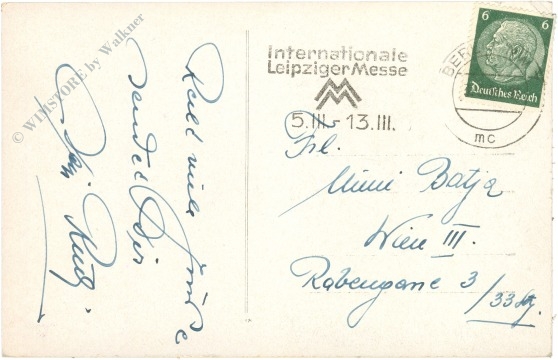 © WIMSTORE by Walkner
Internationale
Leipziger Messe
5.III.-13.III.
BER
mc
6 6
Deutsches Reich
viele
sendet Dir
Frl.
Mimi Batja
Wien III.
Rabengasse 3
/33